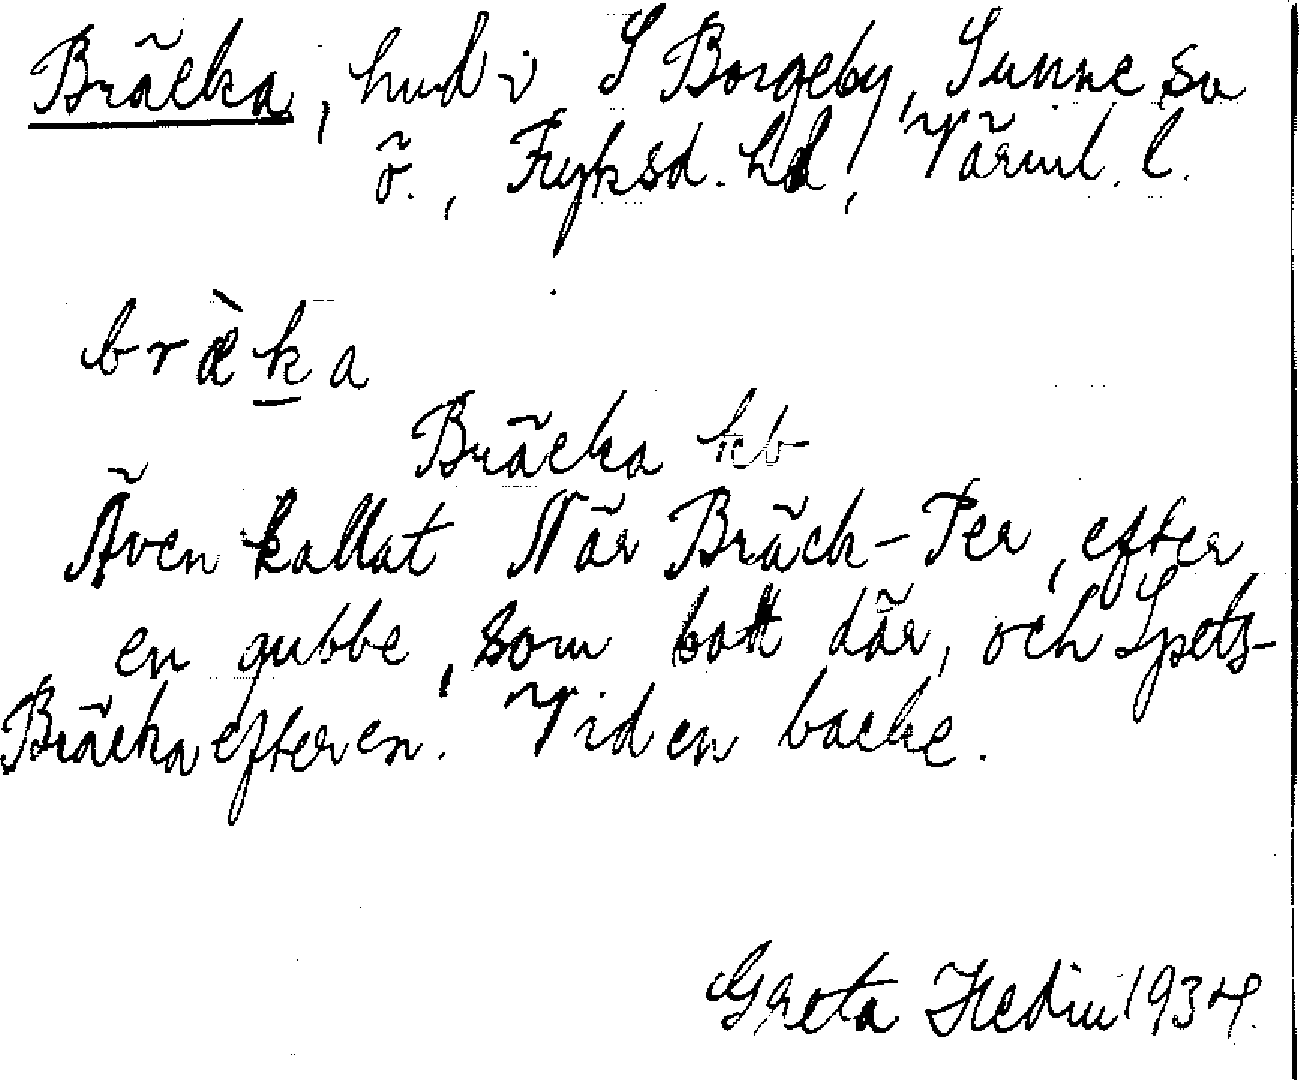 Bräcka, hmd i S Borgeby, Sunne sn
ö., Fryksd. hd, Värml. l.
bræ̀ka
Bräcka kb
Även kallat När Bräck-Per, efter
en gubbe, som bott där, och Spets-
Bräcka efter en. Vid en backe.
Greta Hedin 1934.